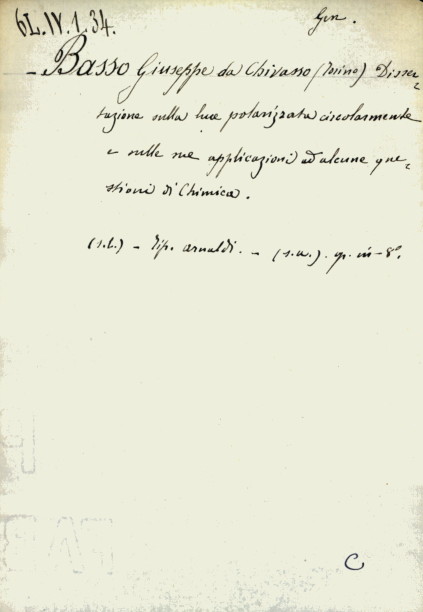 6L.IV.1.34.
Gen.
- Basso Giuseppe da Chivasso (Torino) Disser-
tazione sulla luce polarizzata circolarmente
e sulle sue applicazioni ad alcune que-
stioni di Chimica.
(s.l.) - Tip. Arnaldi. - (s.a.). op. in-8°.
C